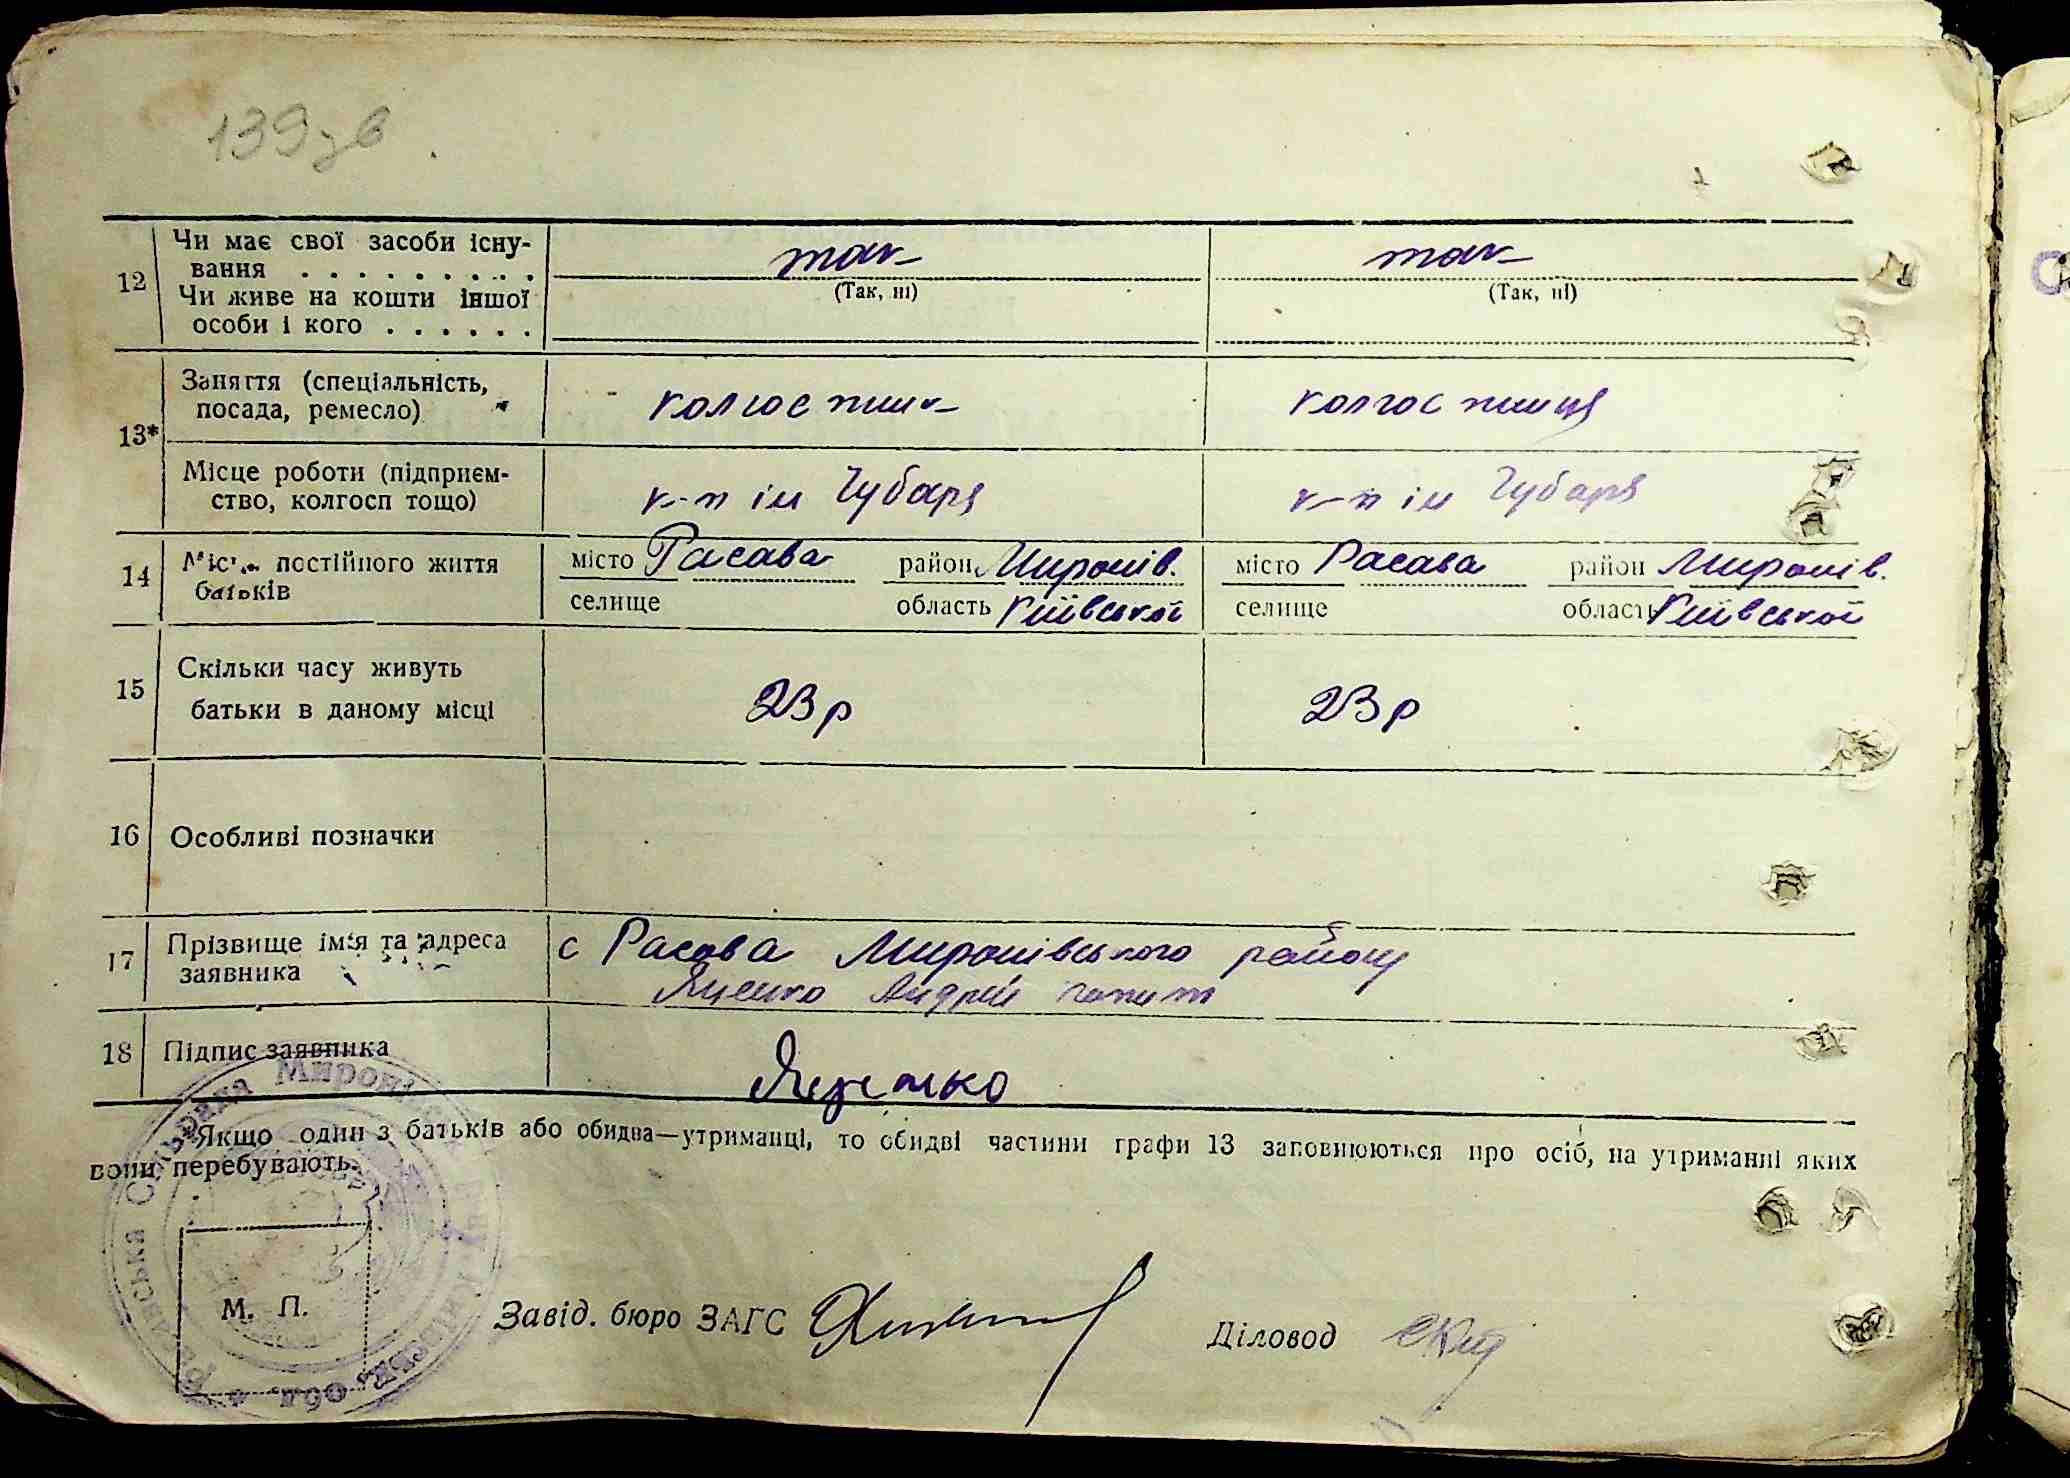 139зв
12 Чи має свої засоби існу-
вання . . . . . . . . . . так так
Чи живе на кошти іншої (Так, ні) (Так, ні)
особи і кого . . . . . .
Заняття (спеціальність,
посада, ремесло) колгоспник колгоспниця
13*
Місце роботи (підприєм-
ство, колгосп тощо) к-п ім Чубаря к-п ім Чубаря
14 Місце постійного життя місто Расава район Миронів. місто Расава район Миронів.
батьків селище область Київської селище область Київської
15 Скільки часу живуть
батьки в даному місці 23 р 23 р
16 Особливі позначки
17 Прізвище ім'я та адреса с Расава Миронівського району
заявника Яценко Андрій
18 Підпис заявника Яценко
Якщо один з батьків або обидва—утриманці, то обидві частини графи 13 заповнюються про осіб, на утриманні яких
вони перебувають.
М. П.
Завід. бюро ЗАГС
Діловод